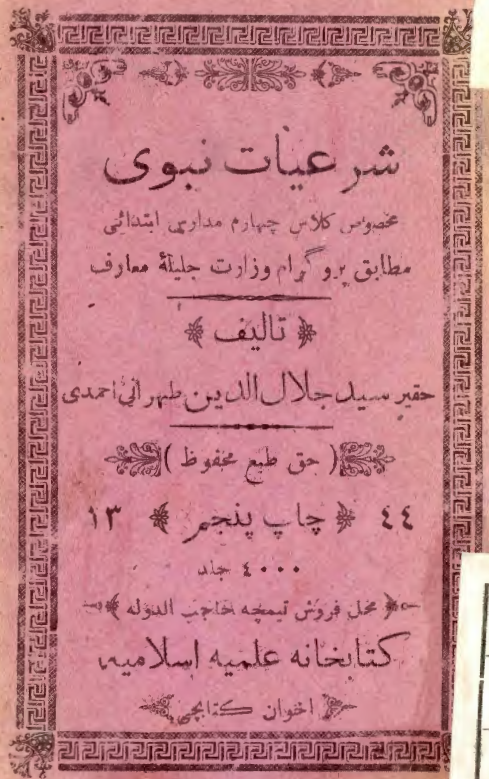 شرعیات نبوی
مخصوص کلاس چهارم مدارس ابتدائی
مطابق پروگرام وزارت جلیلهٔ معارف
تالیف
حقیر سید جلال الدین طهرانی احمدی
( حق طبع محفوظ )
٤٤ چاپ پنجم ١٣
٤٠٠٠ جلد
محل فروش تیمچه حاجب الدوله
کتابخانه علمیه اسلامیه
اخوان کتابچی